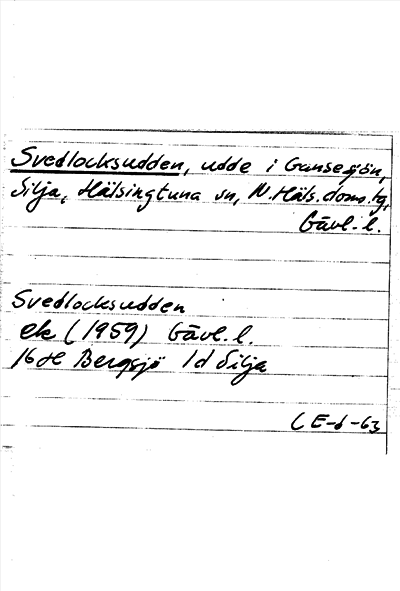 Svedlocksudden, udde i Gansesjön,
Silja, Hälsingtuna sn, N. Häls. doms. tg,
Gävl. l.
Svedlocksudden
ek (1959) Gävl. l.
16H Bergsjö 1d Silja
CE-6-63